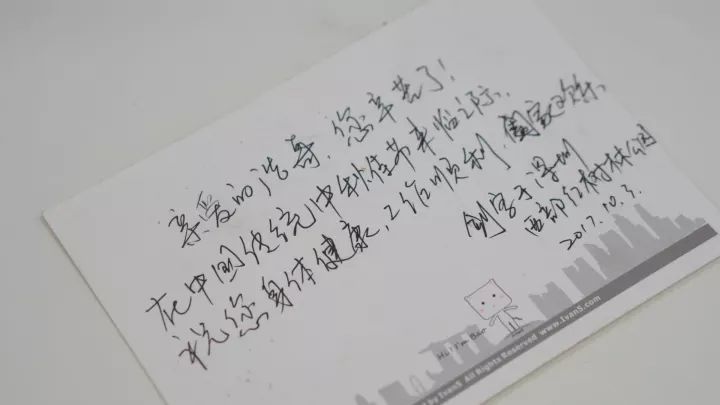 亲爱的浩哥,您辛苦了!
在中国传统中秋佳节来临之际,
祝您身体健康,工作顺利,阖家欢乐
创客于深圳
西部红树林公园
2017.10.3.
Hi! I'm Bao
by IvanS All Rights Reserved www.IvanS.com